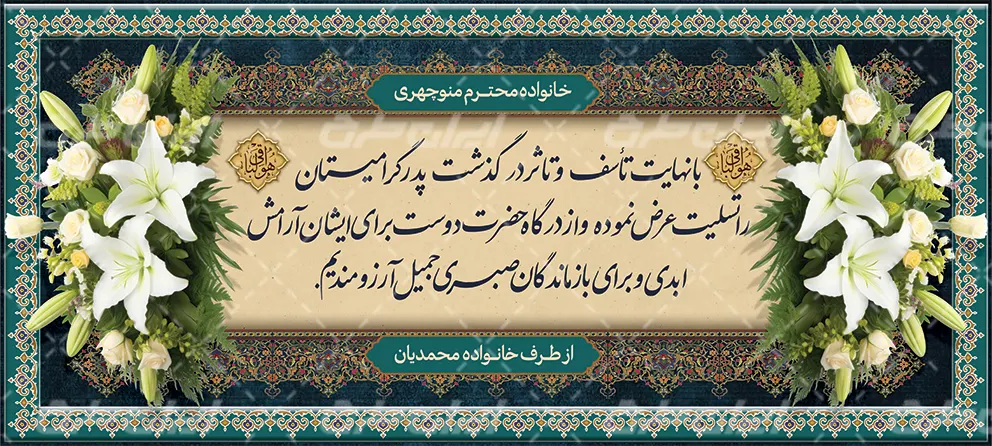 خانواده محترم منوچهری
هوالباقی
هوالباقی
با نهایت تأسف و تاثر در گذشت پدر گرامیستان
را تسلیت عرض نموده و از درگاه حضرت دوست برای ایشان آرامش
ابدی و برای بازماندگان صبری جمیل آرزومندیم.
از طرف خانواده محمدیان